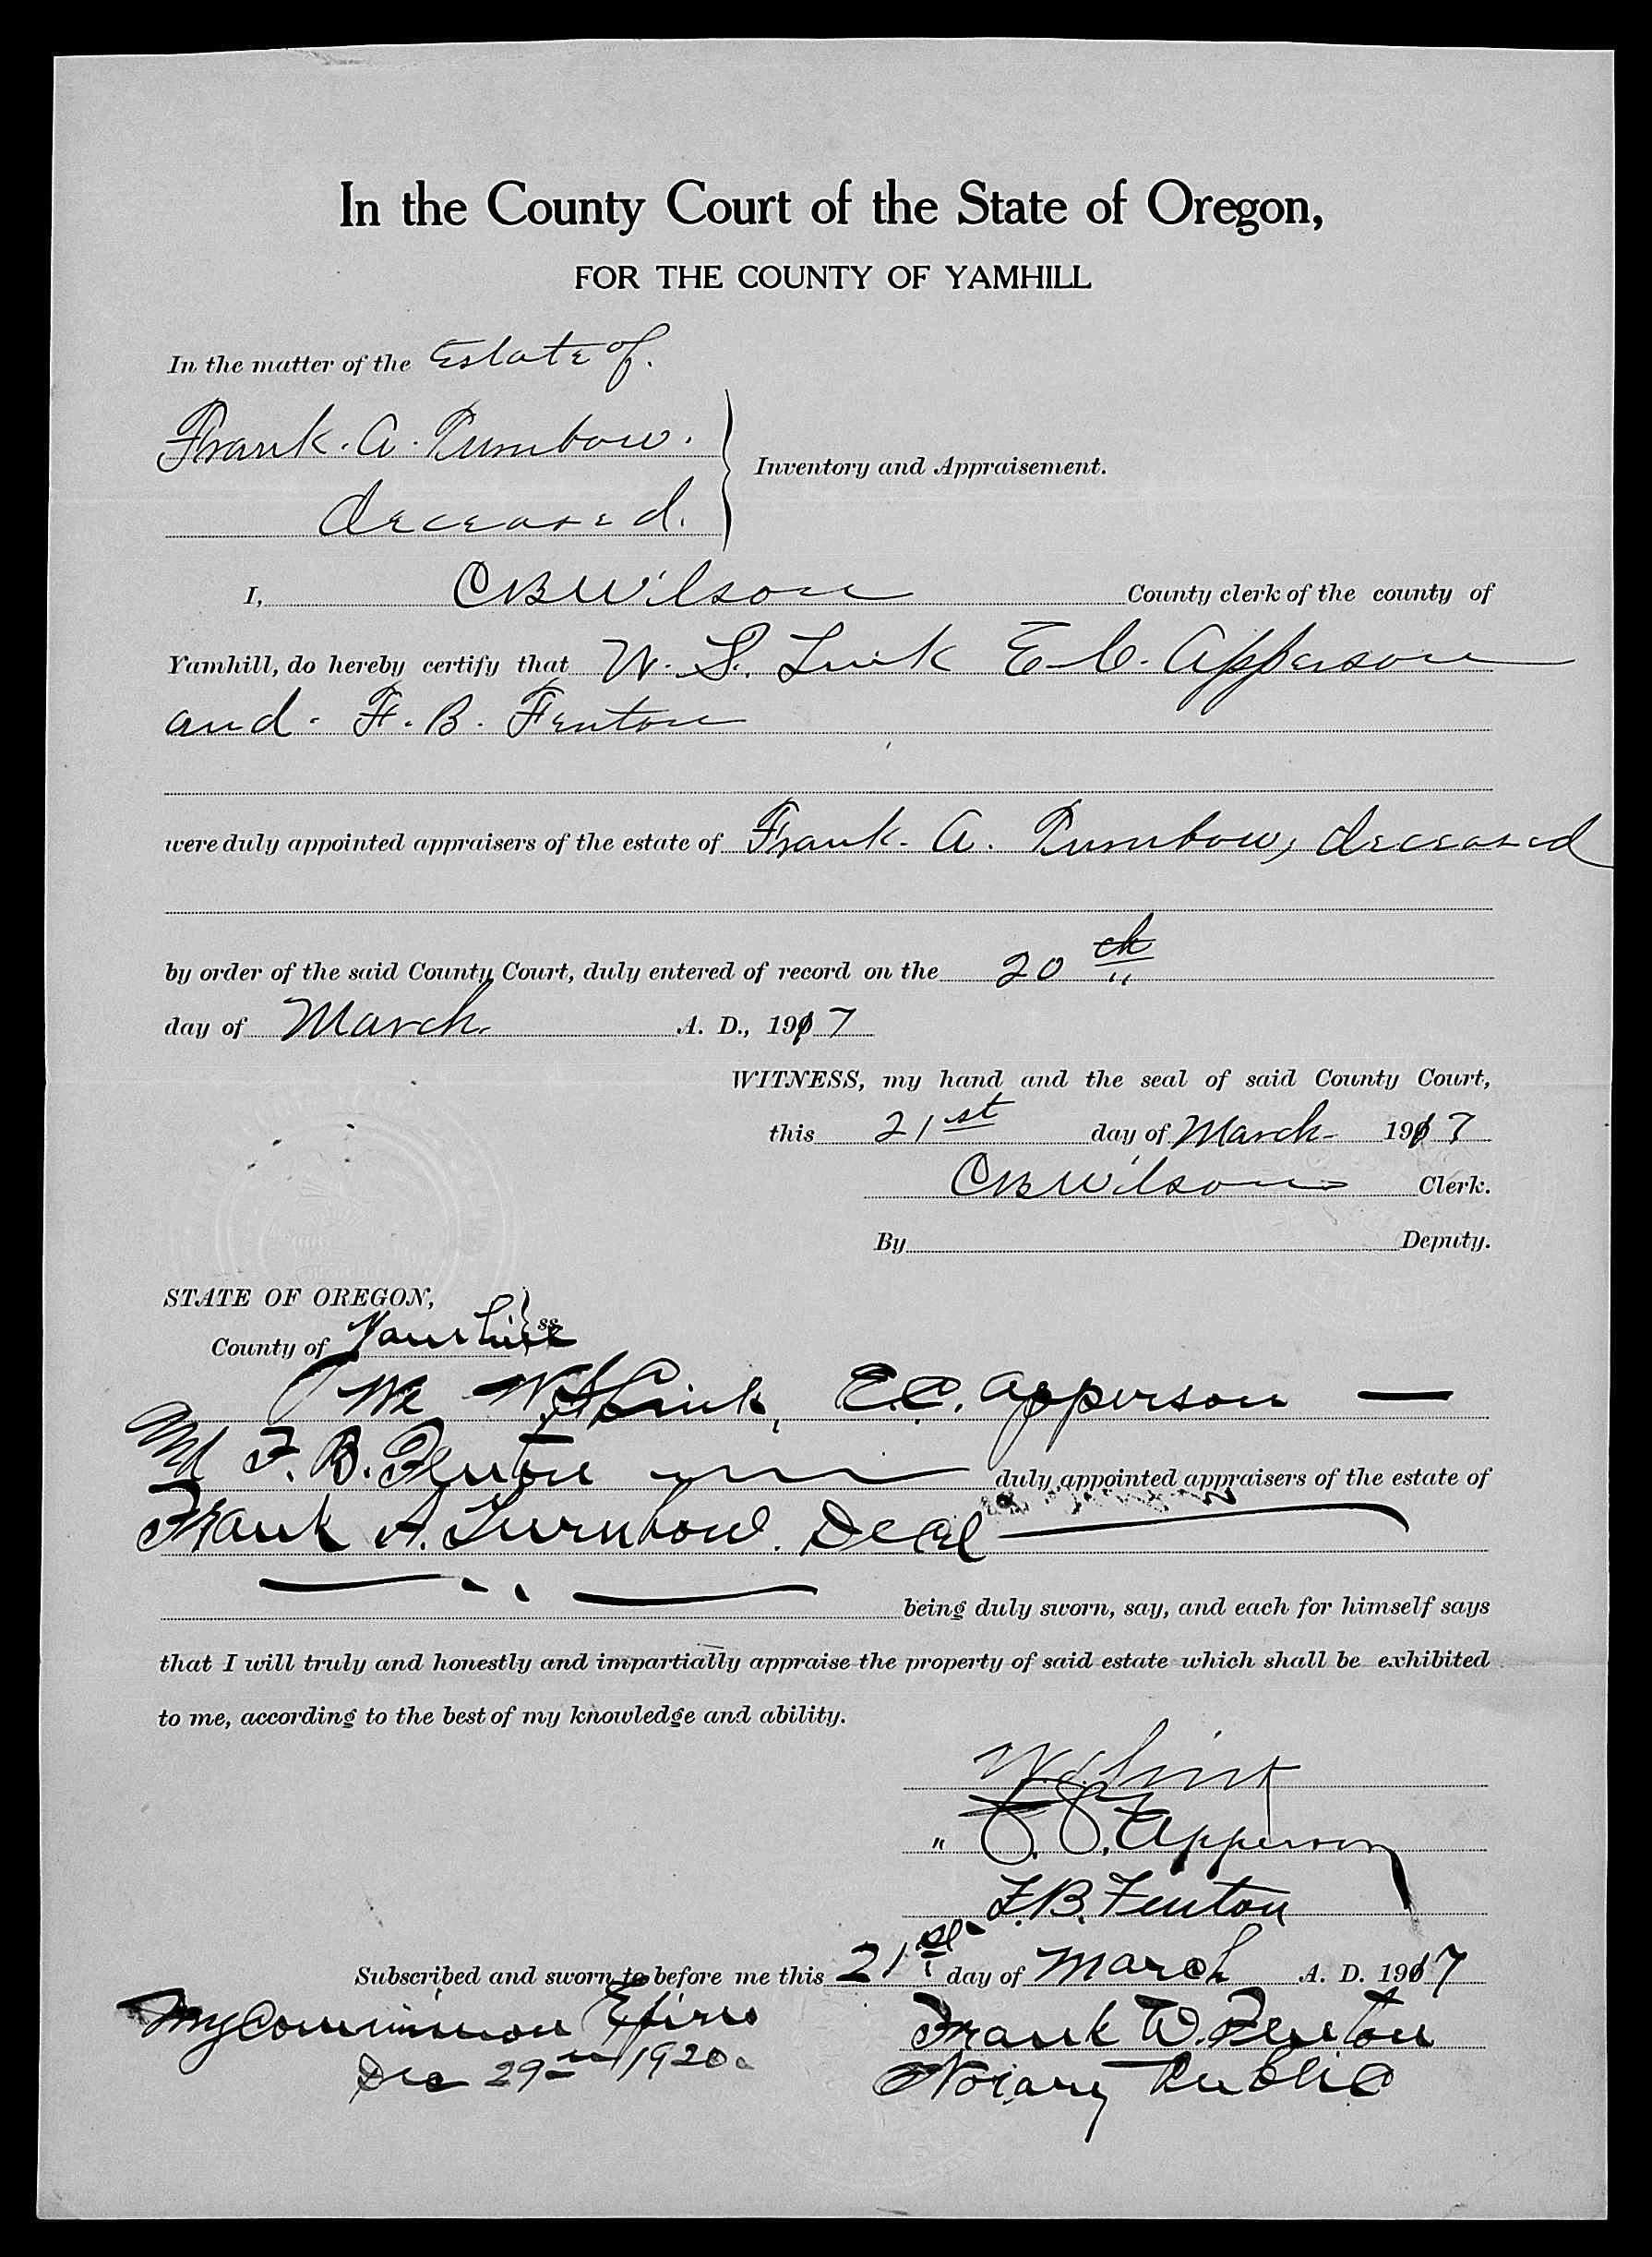 In the County Court of the State of Oregon,
FOR THE COUNTY OF YAMHILL
In the matter of the Estate of.
Frank. A. Turnbow.
deceased.
Inventory and Appraisement.
I, C B Wilson County clerk of the county of
Yamhill, do hereby certify that W. S. Link E. C. Apperson
and. F. B. Fenton
were duly appointed appraisers of the estate of Frank. A. Turnbow, deceased
by order of the said County Court, duly entered of record on the 20th
day of March A. D., 1917
WITNESS, my hand and the seal of said County Court,
this 21st day of March 1917
C B Wilson Clerk.
By Deputy.
STATE OF OREGON,
County of Yamhill ss
We W. S. Link, E.C. Apperson —
and F. B. Fenton duly appointed appraisers of the estate of
Frank A. Turnbow. Decd
being duly sworn, say, and each for himself says
that I will truly and honestly and impartially appraise the property of said estate which shall be exhibited
to me, according to the best of my knowledge and ability.
W. S. Link
" E. C. Apperson
F. B. Fenton
Subscribed and sworn to before me this 21st day of March A. D. 1917
My Commission Expires Frank W. Fenton
Dec 29th 1920. Notary Public